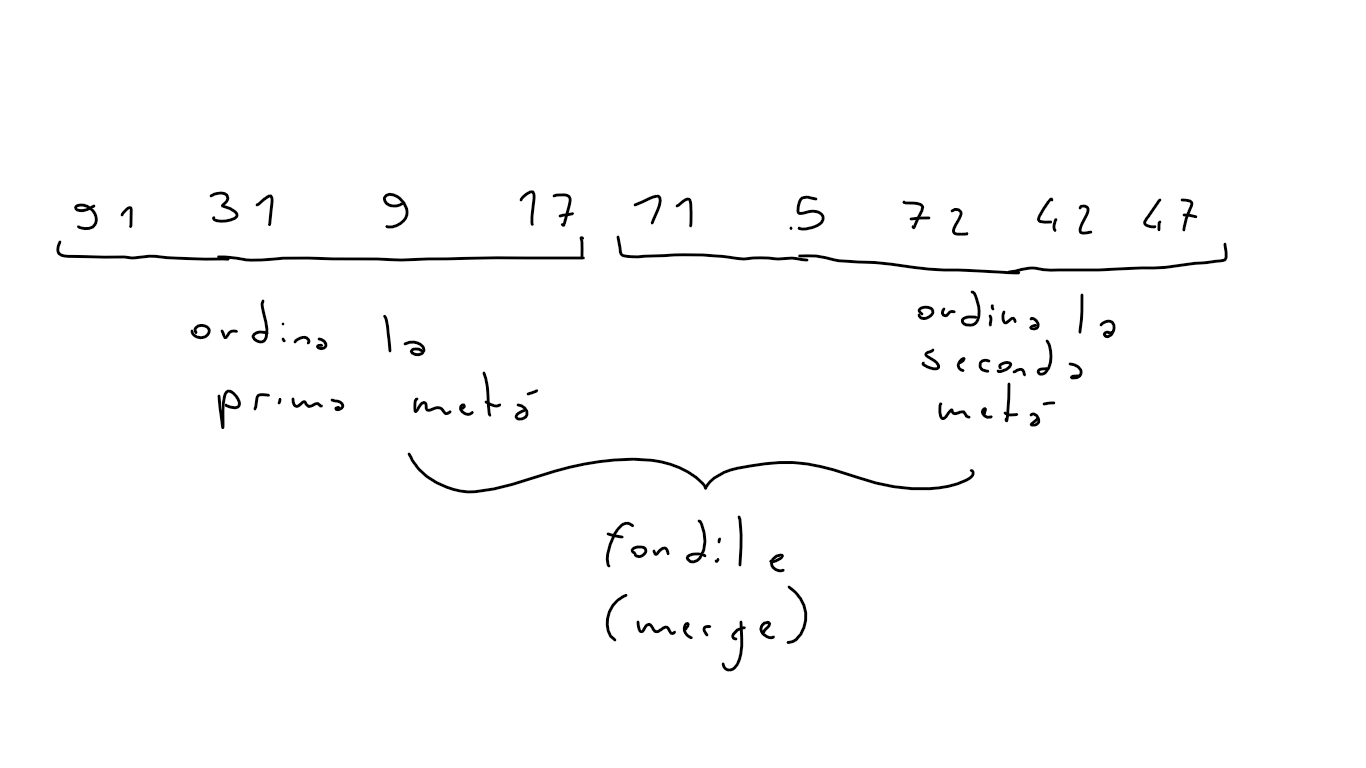 91 31 9 17 11 5 72 42 47
ordina la
prima metà
ordina la
seconda
metà
fondile
(merge)